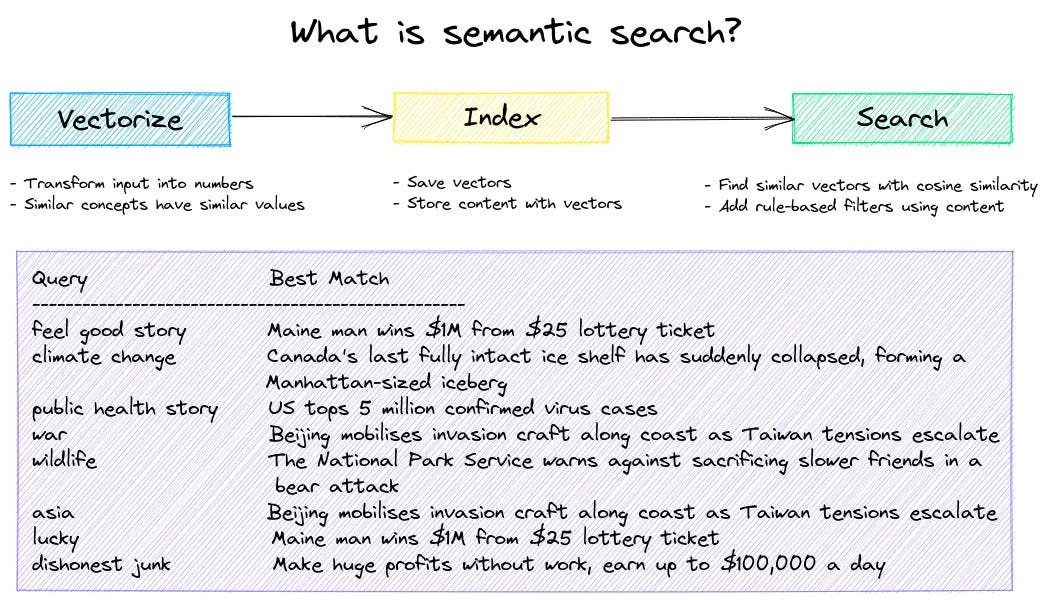 What is semantic search?
Vectorize
Index
Search
- Transform input into numbers
- Similar concepts have similar values
- Save vectors
- Store content with vectors
- Find similar vectors with cosine similarity
- Add rule-based filters using content
Query Best Match
----------------------------------------------------
feel good story Maine man wins $1M from $25 lottery ticket
climate change Canada's last fully intact ice shelf has suddenly collapsed, forming a
Manhattan-sized iceberg
public health story US tops 5 million confirmed virus cases
war Beijing mobilises invasion craft along coast as Taiwan tensions escalate
wildlife The National Park Service warns against sacrificing slower friends in a
bear attack
asia Beijing mobilises invasion craft along coast as Taiwan tensions escalate
lucky Maine man wins $1M from $25 lottery ticket
dishonest junk Make huge profits without work, earn up to $100,000 a day